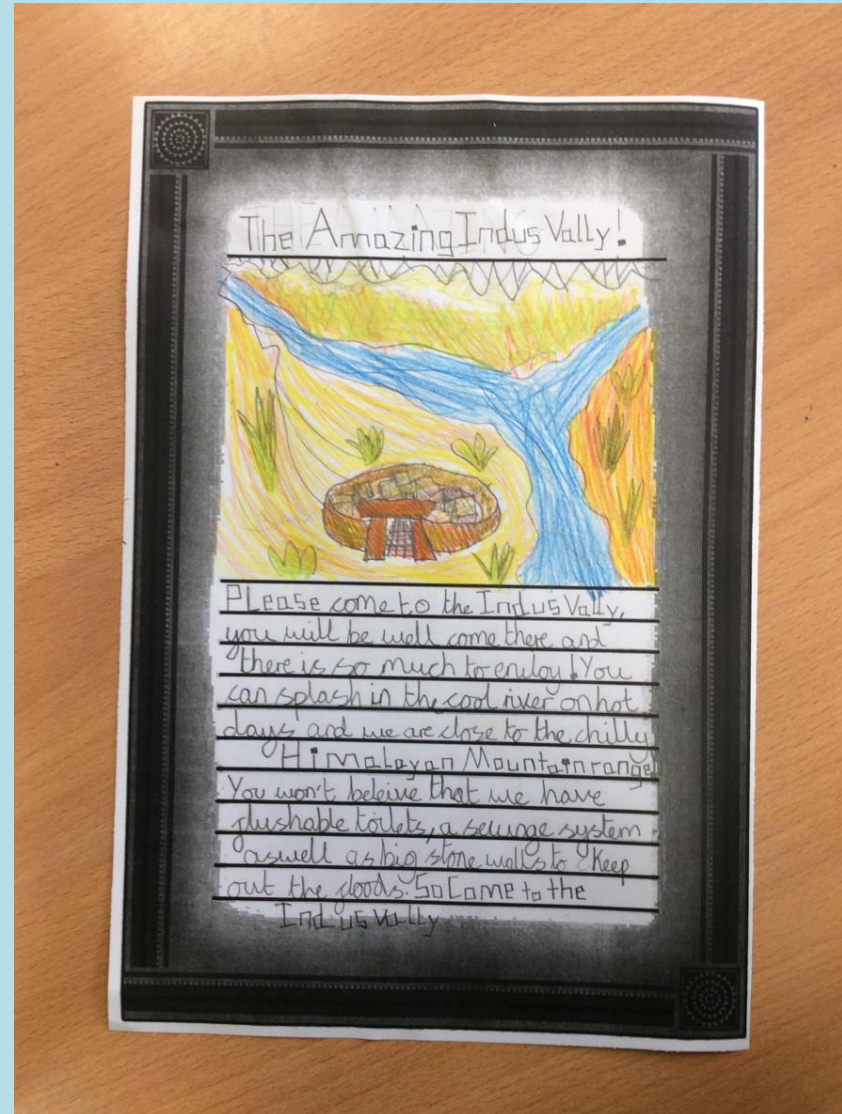 The Amazing Indus Vally!
Please come to the Indus Vally,
you will be well come there and
there is so much to enjoy! You
can splash in the cool river on hot
days and we are close to the chilly
Himalayan Mountain range!
You won't beleive that we have
flushable toilets, a sewage system
aswell as big stone walls to Keep
out the floods. So Come to the
Indus Vally